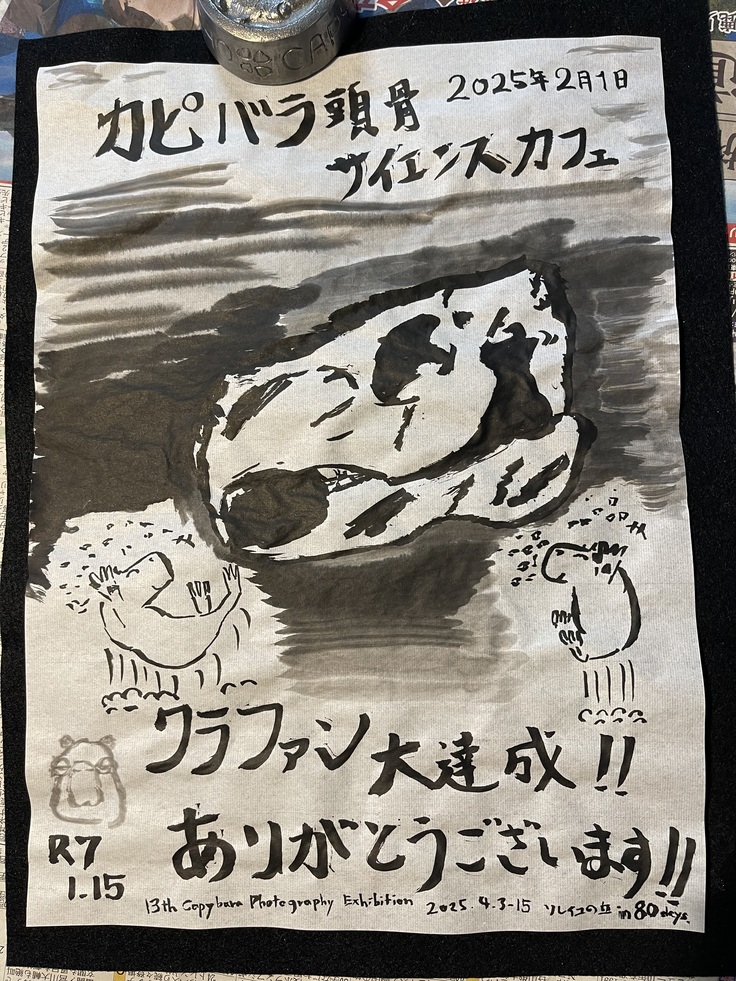 カピバラ頭骨
2025年2月1日
サイエンスカフェ
クラファン大達成!!
ありがとうございます!!
R7
1.15
13th Copybara Photography Exhibition 2025.4.3-15 ソレイユの丘 in 80 days.